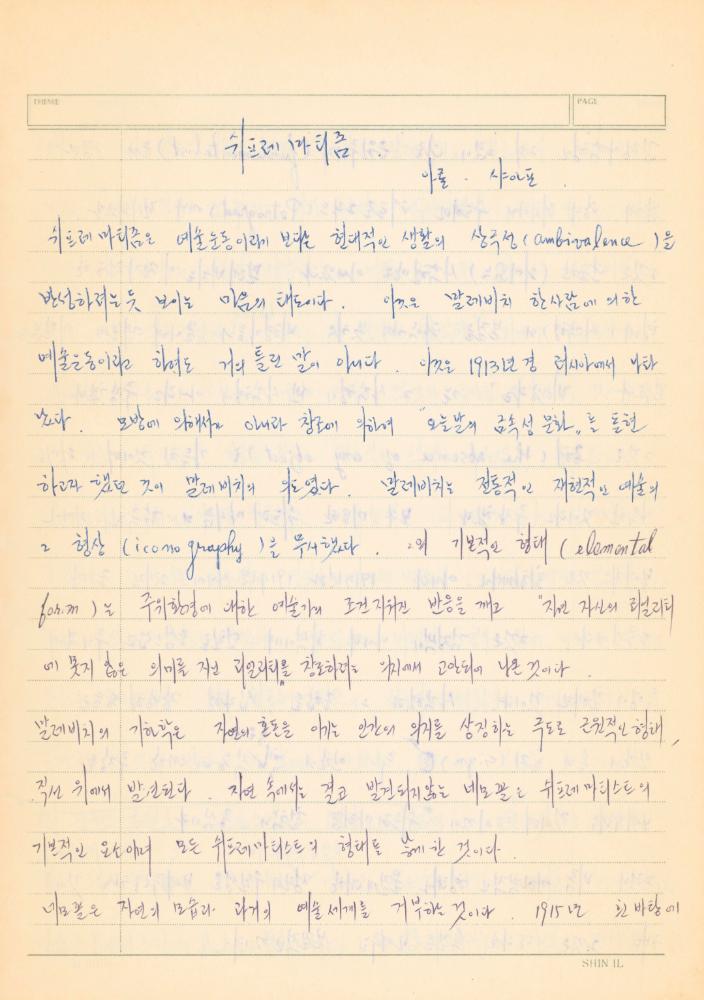 THEME
PAGE
쉬프레마티즘.
아롤 · 샤아프.
쉬프레마티즘은 예술운동이라기 보다는 현대적인 생활의 상극성(ambivalence)을
반성하려는듯 보이는 마음의 태도이다. 이것은 말레비치 한사람에 의한
예술운동이라고 하여도 거의 틀린 말이 아니다. 이것은 1913년경 러시아에서 나타
났다. 모방에 의해서가 아니라 창조에 의하여 "오늘날의 금속성 문화"를 표현
하고자 했던 것이 말레비치의 의도였다. 말레비치는 전통적인 재현적인 예술의
그 형상(iconography)을 무시했다. 그의 기본적인 형태(elemental
form)는 주위환경에 대한 예술가의 조건지워진 반응을 깨고 "자연 자신의 리얼리티
에 못지 않은 의미를 지닌 리얼리티"를 창조하려는 의지에서 고안되어 나온 것이다.
말레비치의 기하학은 자연의 혼돈을 이기는 인간의 의지를 상징하는 주도로 근원적인 형태,
직선 위에서 발견된다. 자연 속에서는 결코 발견되지않는 네모꼴은 쉬프레마티스트의
기본적인 요소이며 모든 쉬프레마티스트의 형태를 낳게 한 것이다.
네모꼴은 자연의 모습과 과거의 예술세계를 거부하는 것이다. 1915년 흰바탕에
SHIN IL